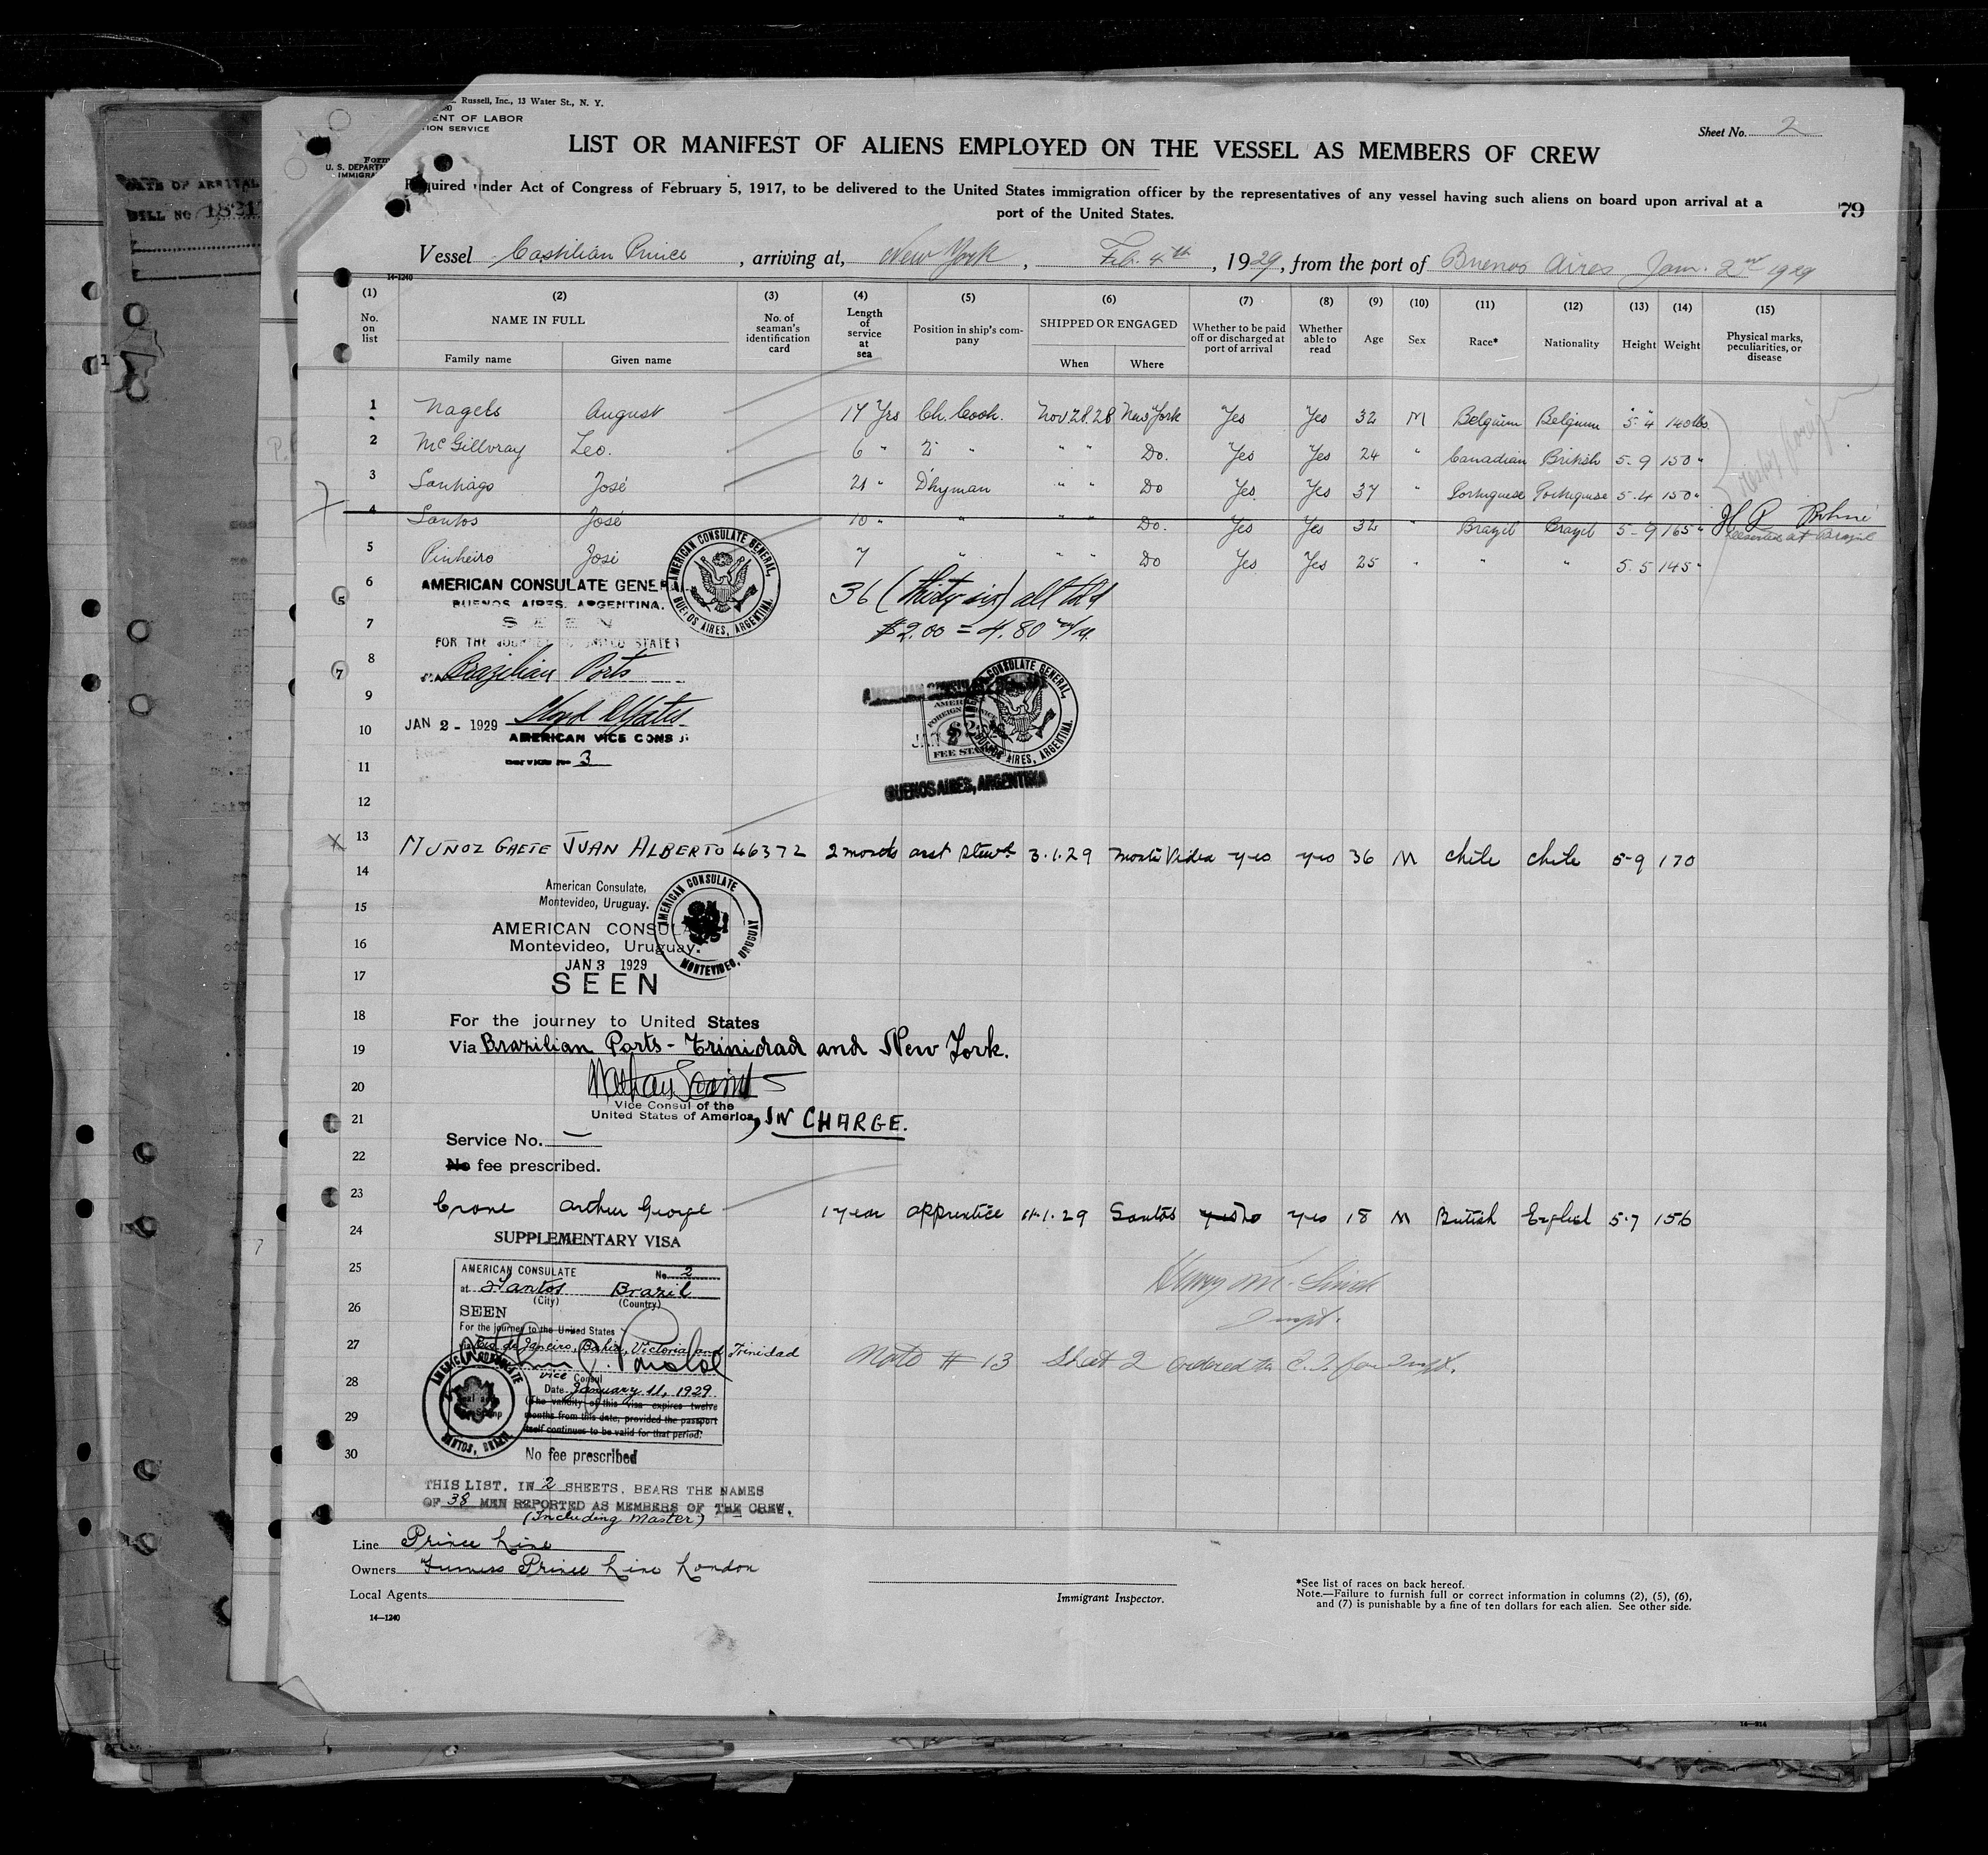 Russell, Inc., 13 Water St., N. Y.
ENT OF LABOR
TION SERVICE
Form
U. S. DEPARTM
IMMIGRA
Sheet No. 2
LIST OR MANIFEST OF ALIENS EMPLOYED ON THE VESSEL AS MEMBERS OF CREW
Required under Act of Congress of February 5, 1917, to be delivered to the United States immigration officer by the representatives of any vessel having such aliens on board upon arrival at a
port of the United States.
79
DATE OF ARRIVAL
BILL NO. 1821
Vessel Castilian Prince, arriving at, New York, Feb. 4th, 1929, from the port of Buenos Aires Jan. 2nd 1929
14-1240
(1) (2) (3) (4) (5) (6) (7) (8) (9) (10) (11) (12) (13) (14) (15)
No. on list
NAME IN FULL
Family name Given name
No. of seaman's identification card
Length of service at sea
Position in ship's company
SHIPPED OR ENGAGED
When Where
Whether to be paid off or discharged at port of arrival
Whether able to read
Age Sex Race* Nationality Height Weight
Physical marks, peculiarities, or disease
1 Nagels August 17 Yrs Ch. Cook. Nov 28.28 New York Yes Yes 32 M Belgium Belgium 5'4" 140 lbs
2 McGillvray Leo. 6 " 2 " " " Do. Yes Yes 24 " Canadian British 5-9 150 "
3 Santiago José 21 " D'kyman " " Do Yes Yes 37 " Portuguese Portuguese 5-4 150 "
4 Santos José 10 " " " " Do. Yes Yes 32 " Brazil Brazil 5-9 165 "
Deserted at Brazil
5 Pinheiro José 7 " " " Do Yes Yes 25 " " " 5-5 145 "
6
AMERICAN CONSULATE GENER
BUENOS AIRES, ARGENTINA.
AMERICAN CONSULATE GENERAL, BUENOS AIRES, ARGENTINA.
36 (thirty six) all told
$2.00 = 4.80 m/n
7
SEEN
FOR THE JOURNEY TO UNITED STATES
8
VIA Brazilian Ports
9
10
JAN 2 - 1929
AMERICAN VICE CONSUL
Service No 3
AMERICAN CONSULATE GENERAL
AMERICAN CONSULATE GENERAL, BUENOS AIRES, ARGENTINA.
FEE STAMP
BUENOS AIRES, ARGENTINA
11
12
13 MUÑOZ GAETE JUAN ALBERTO 46372 2 months asst stewd 3.1.29 Monte Video yes yes 36 M chile chile 5-9 170
14
American Consulate,
Montevideo, Uruguay.
15
AMERICAN CONSULATE MONTEVIDEO, URUGUAY
AMERICAN CONSULA
16
Montevideo, Uruguay.
JAN 3 1929
17
SEEN
18
For the journey to United States
19
Via Brazilian Ports - Trinidad and New York.
20
Vice Consul of the
United States of America, IN CHARGE.
21
Service No. —
22
No fee prescribed.
23 Crone Arthur George 1 year apprentice 11.1.29 Santos yes No yes 18 M British English 5-7 156
24
SUPPLEMENTARY VISA
25
AMERICAN CONSULATE No. 2
at Santos Brazil
(City) (Country)
26
SEEN
For the journey to the United States
27
via Rio de Janeiro, Bahia, Victoria and Trinidad
vice Consul
28
Date January 11, 1929
(The validity of this visa expires twelve
29
months from this date, provided the passport
itself continues to be valid for that period.
AMERICAN CONSULATE SANTOS, BRAZIL
30
No fee prescribed
Note # 13 Sheet 2 ordered to E. I. for Inspt.
THIS LIST, IN 2 SHEETS, BEARS THE NAMES
OF 38 MEN REPORTED AS MEMBERS OF THE CREW.
(Including Master)
Line Prince Line
Owners Furness Prince Line London
Local Agents
14-1240
Immigrant Inspector.
*See list of races on back hereof.
Note.—Failure to furnish full or correct information in columns (2), (5), (6),
and (7) is punishable by a fine of ten dollars for each alien. See other side.
14-314